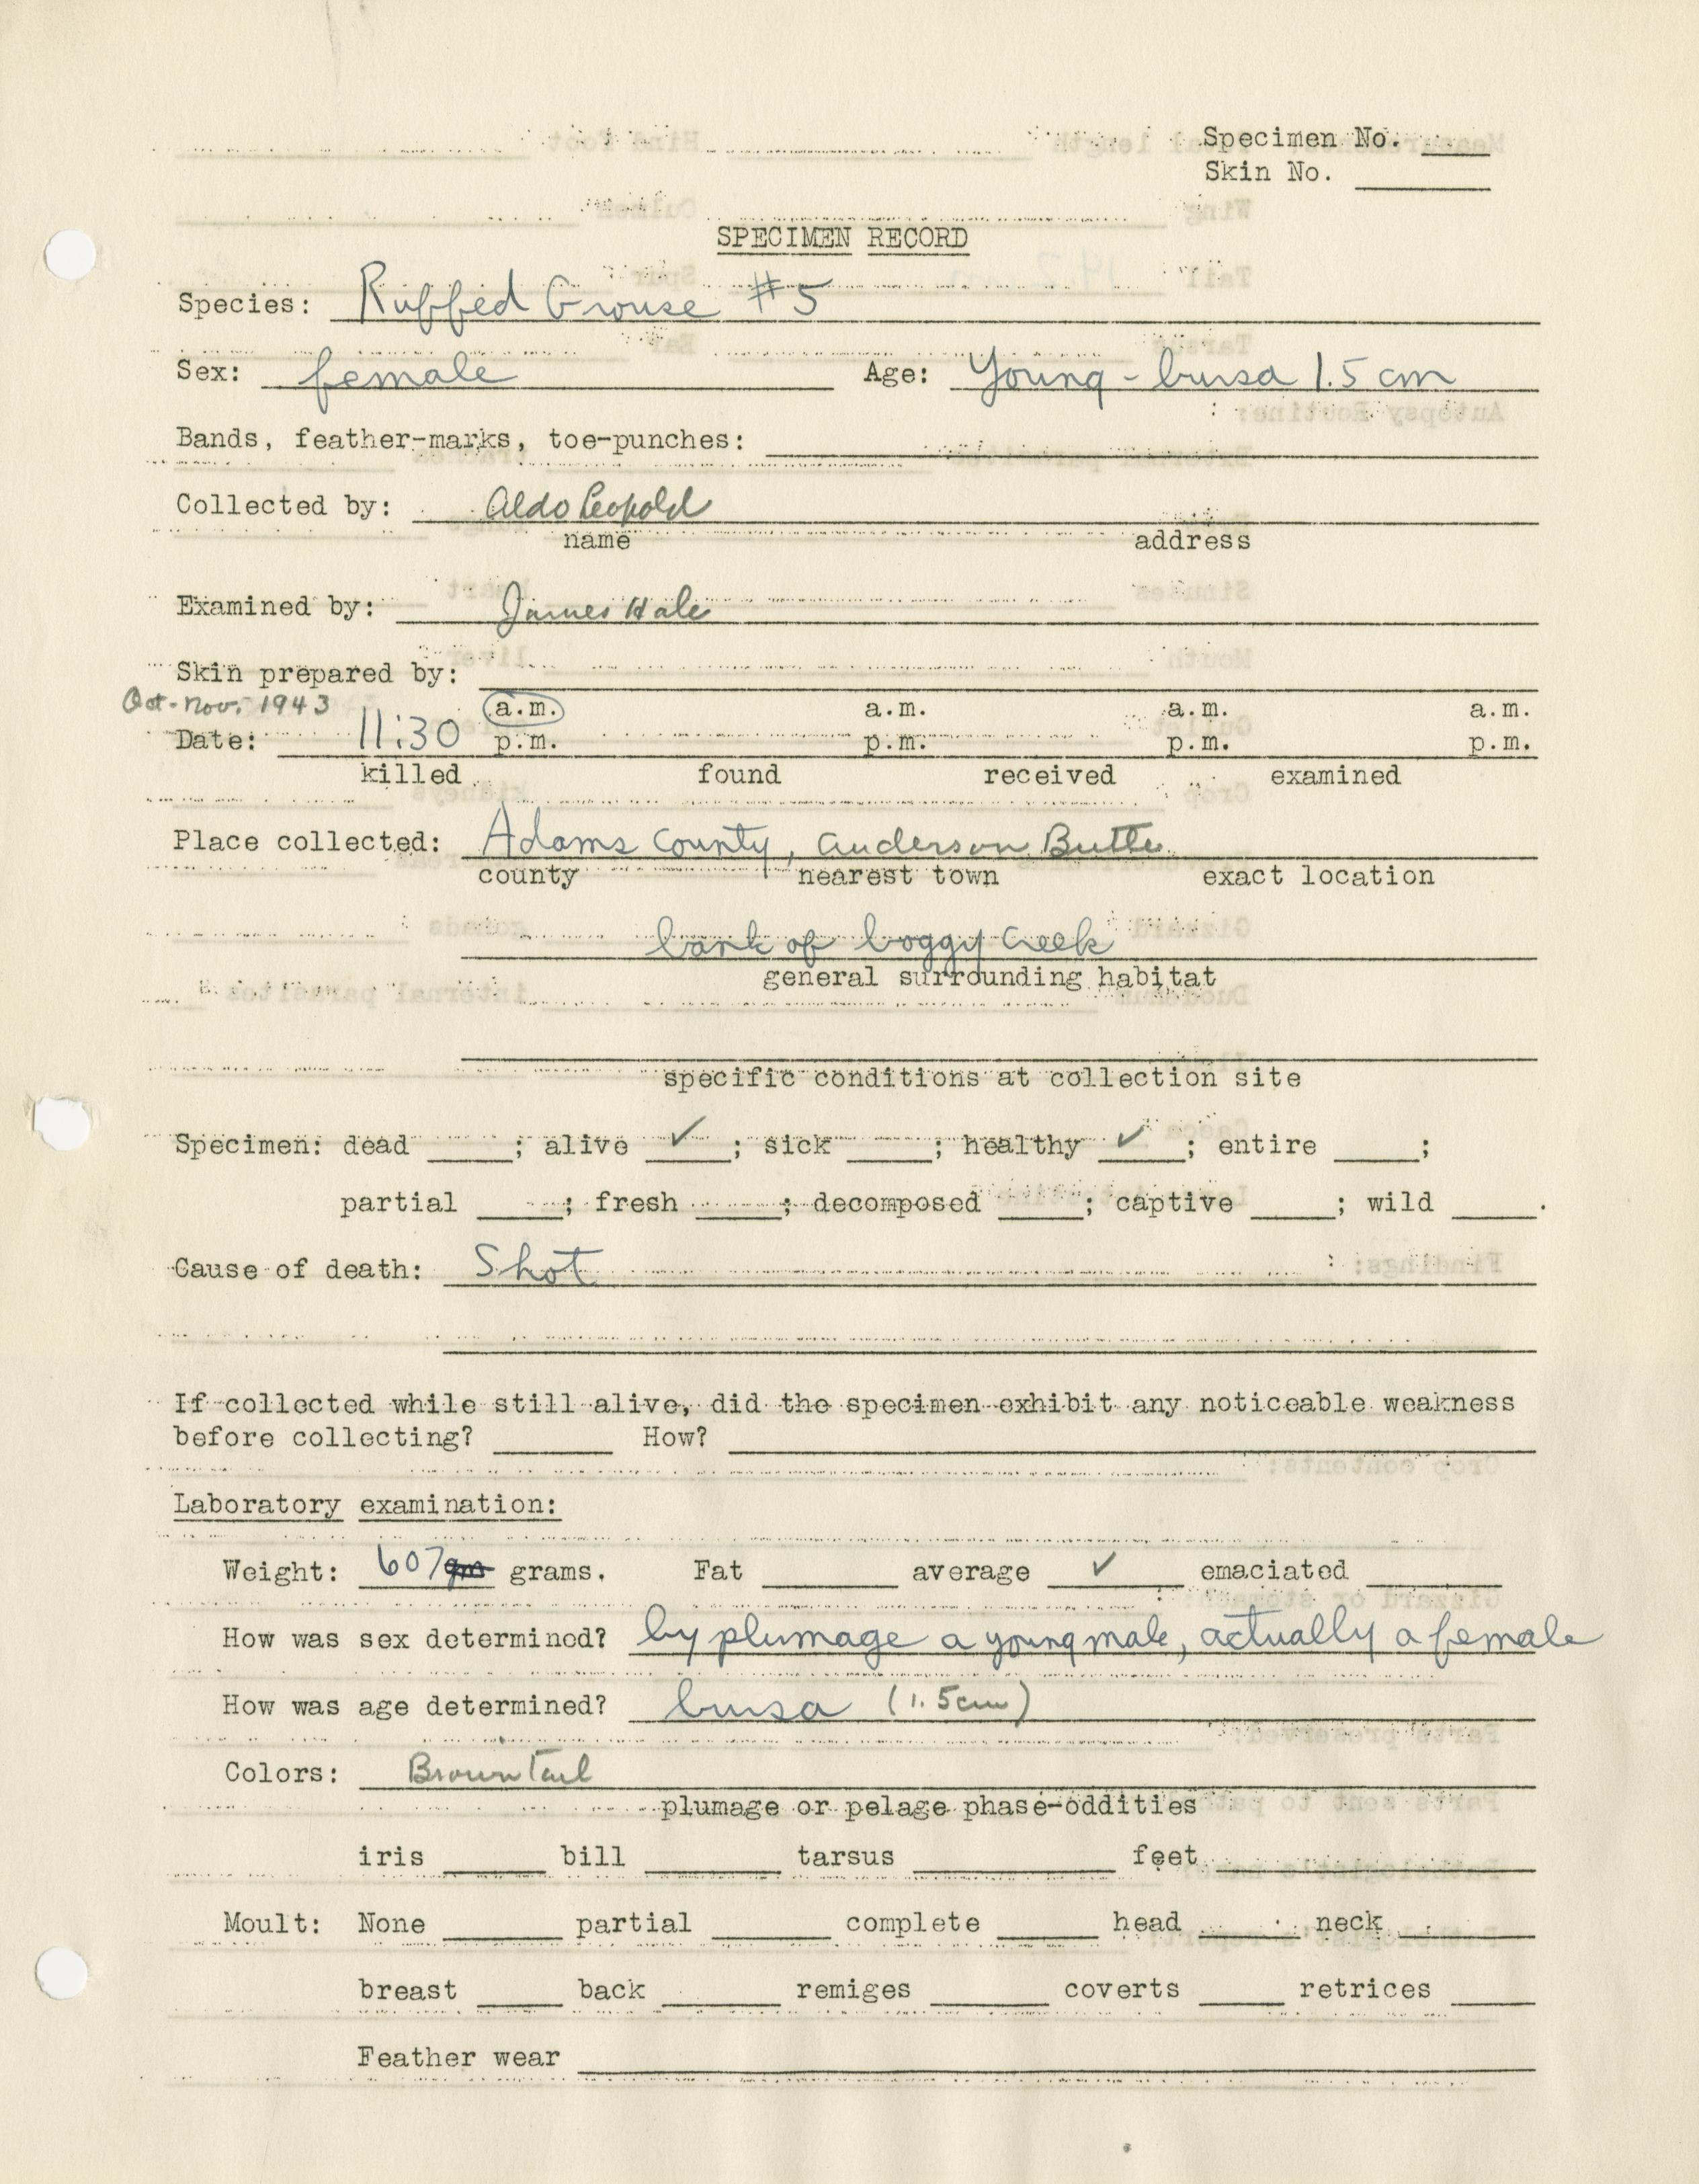 Specimen No. ____
Skin No. ____
SPECIMEN RECORD
Species: Ruffed Grouse #5
Sex: female Age: Young - bursa 1.5 cm
Bands, feather-marks, toe-punches: ____
Collected by: Aldo Leopold
name address
Examined by: James Hale
Skin prepared by: ____
Oct-Nov. 1943
a.m. a.m. a.m. a.m.
Date: 11:30 p.m. p.m. p.m. p.m.
killed found received examined
Place collected: Adams County, Anderson Butte
county nearest town exact location
bank of boggy creek
general surrounding habitat
specific conditions at collection site
Specimen: dead ____; alive ✓; sick ____; healthy ✓; entire ____;
partial ____; fresh ____; decomposed ____; captive ____; wild ____.
Cause of death: Shot
If collected while still alive, did the specimen exhibit any noticeable weakness
before collecting? ____ How? ____
Laboratory examination:
Weight: 607 gm grams. Fat ____ average ✓ emaciated ____
How was sex determined? by plumage a young male, actually a female
How was age determined? bursa (1.5cm)
Colors: Brown Tail
plumage or pelage phase-oddities
iris ____ bill ____ tarsus ____ feet ____
Moult: None ____ partial ____ complete ____ head ____ neck ____
breast ____ back ____ remiges ____ coverts ____ retrices ____
Feather wear ____